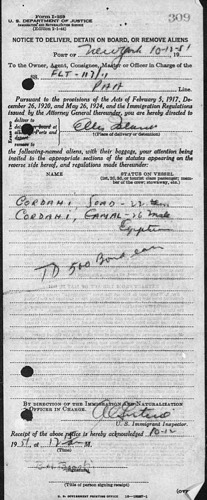 309
Form I-259
U. S. DEPARTMENT OF JUSTICE
IMMIGRATION AND NATURALIZATION SERVICE
NOTICE TO DELIVER, DETAIN ON BOARD, OR REMOVE ALIENS
PORT OF New York 10-12-51
To the Owner, Agent, Consignee, Master or Officer in Charge of the
SS. FLT-
PAA Line.
Pursuant to the provisions of the Acts of February 5, 1917,
December 26, 1920, and May 26, 1924, and the Immigration Regulations
issued by the Attorney General thereunder, you are hereby directed to
Ellis Island
(Place of delivery or detention)
the following-named aliens, with their baggage, your attention being
invited to the appropriate sections of the statutes appearing on the
reverse side hereof, and regulations made thereunder:
NAME STATUS ON VESSEL
CORDAHI,
CORDAHI, GAMAL - 26 male
Egyptian
TD 500 Bond ean
BY DIRECTION OF THE IMMIGRATION AND NATURALIZATION
OFFICER IN CHARGE.
U. S. Immigrant Inspector.
Receipt of the above notice is hereby acknowledged 10-12
1951
U. S. GOVERNMENT PRINTING OFFICE